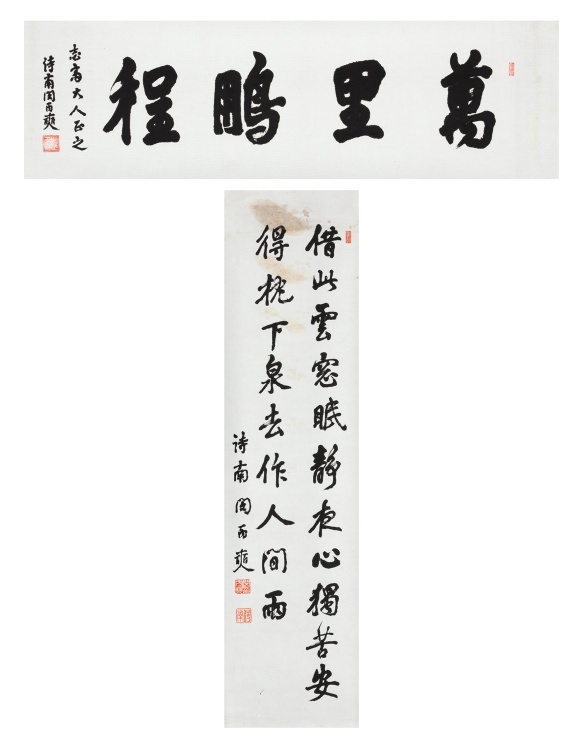 萬里鵬程
志大人正之
詩南閔丙奭
借此雲窓眠靜夜心獨苦安
得枕下泉去作人間雨
詩南閔丙奭